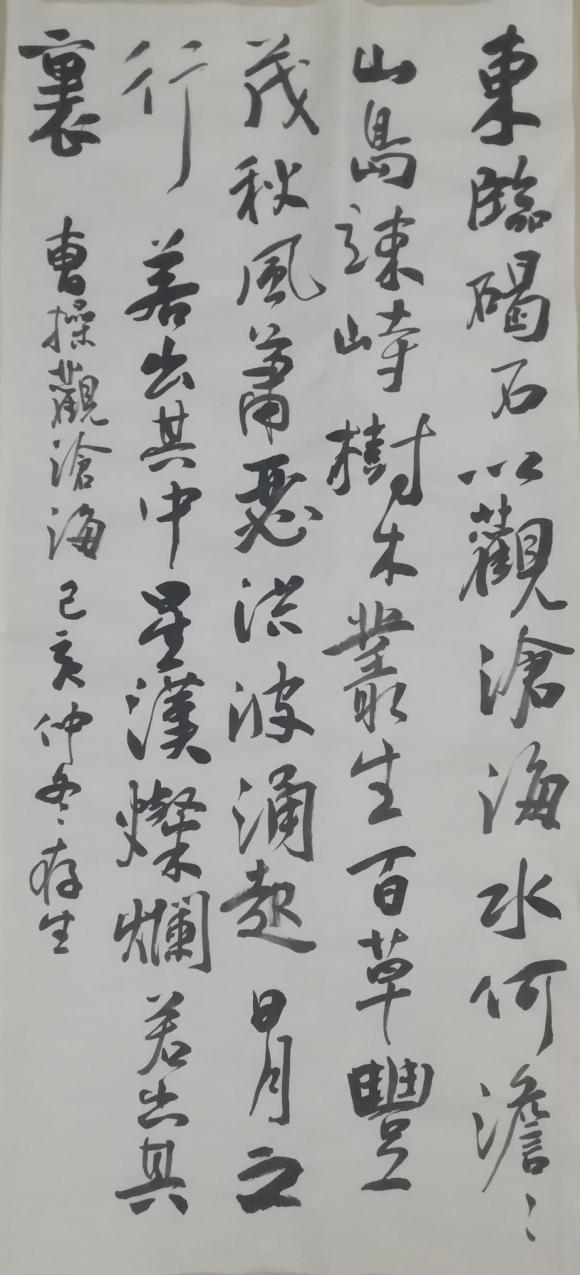 東臨碣石以觀滄海水何澹〻
山島竦峙樹木叢生百草豐
茂秋風蕭瑟洪波涌起日月之
行若出其中星漢燦爛若出其
裏 曹操觀滄海 己亥仲冬存生